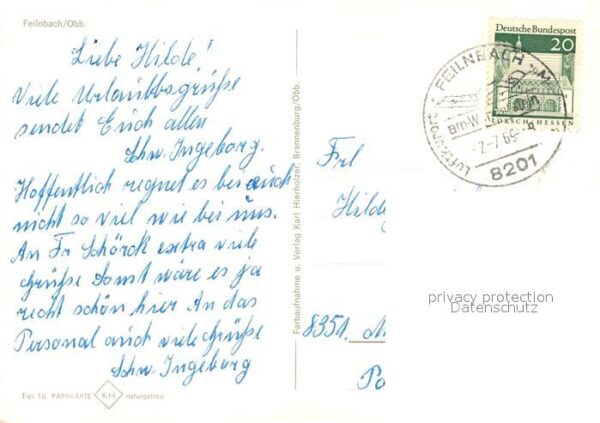 Feilnbach/Obb.
Liebe Hilde!
Viele Urlaubsgrüße
sendet Euch allen
Schw. Ingeborg.
Hoffentlich regnet es bei euch
nicht so viel wie bei uns.
An Fr Schörck extra viele
Grüße Sonst wäre es ja
recht schön hier An das
Personal auch viele Grüße
Schw. Ingeborg
Fei 16 FARBKARTE KH naturgetreu
Farbaufnahme u. Verlag Karl Hierholzer, Brannenburg/Obb.
Deutsche Bundespost
20
LORSCH/HESSEN
FEILNBACH
Luftkurort
-7-7 69-
8201
Frl
Hilde
8351
privacy protection
Datenschutz